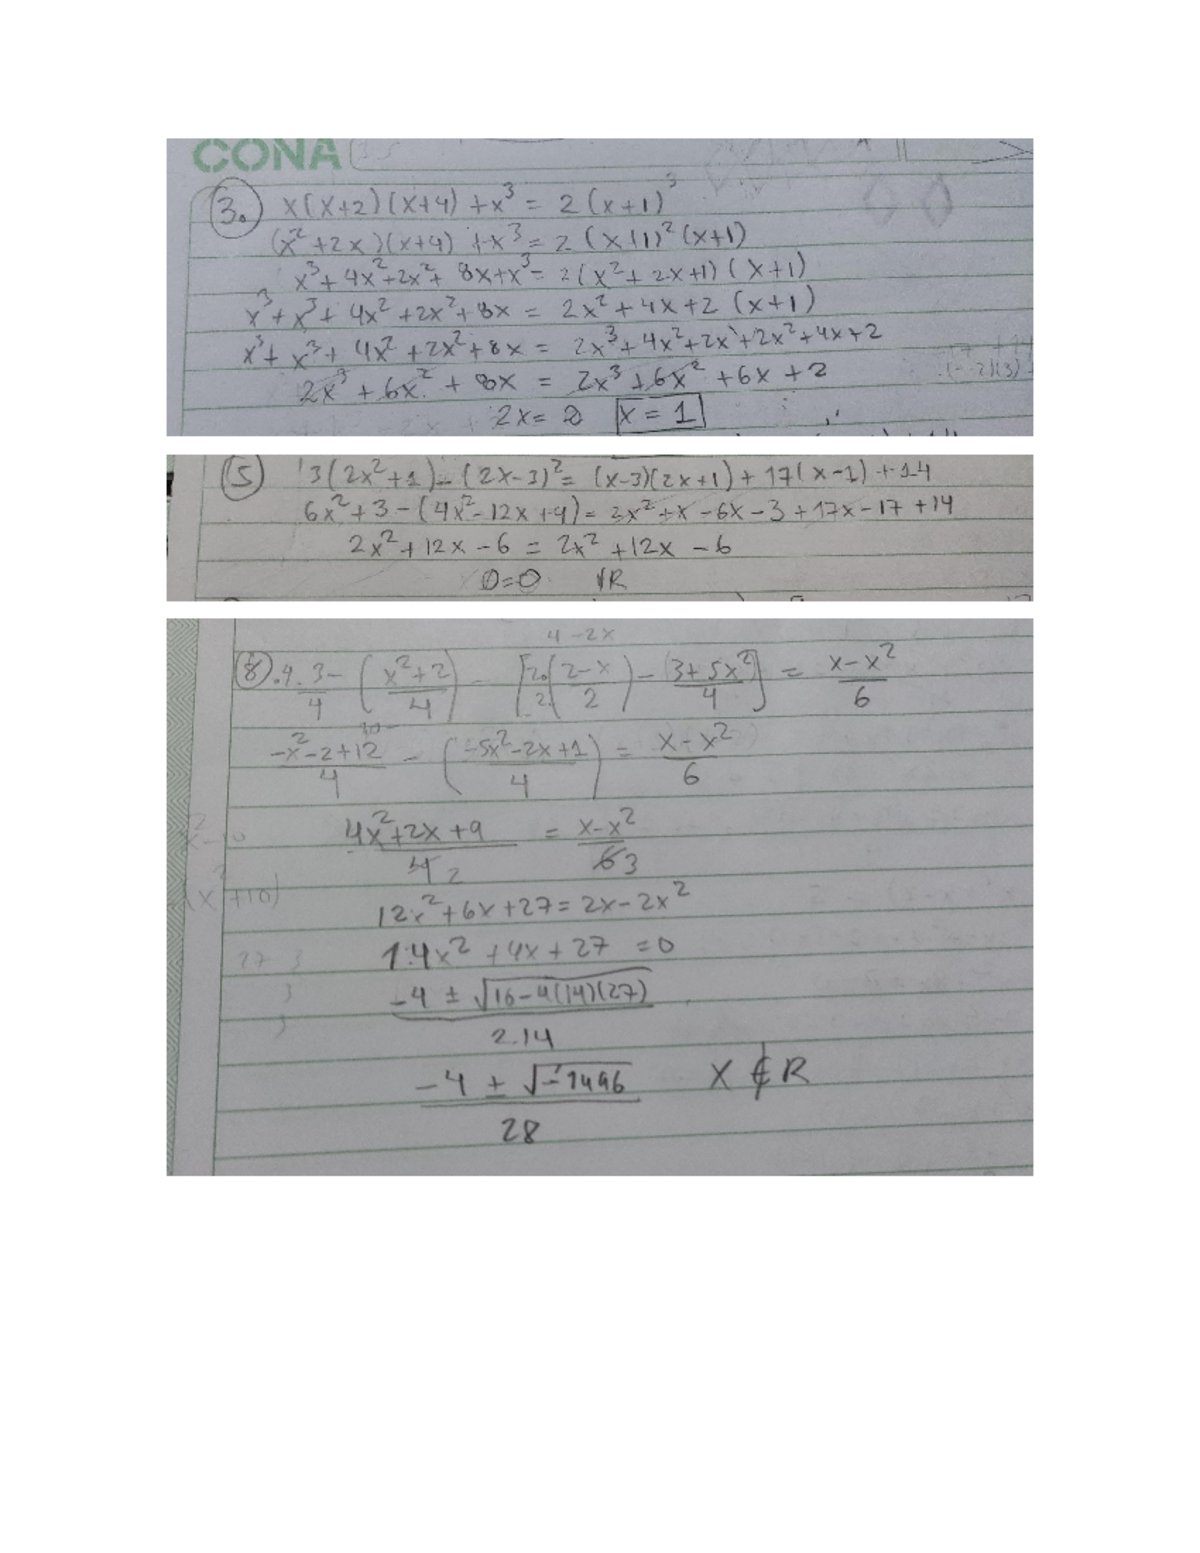 CONA
3. x(x+2)(x+4) + x³ = 2(x+1)³
(x²+2x)(x+4) + x³ = 2(x+1)²(x+1)
x³+4x²+2x²+8x+x³ = 2(x²+2x+1)(x+1)
x³+x³+4x²+2x²+8x = 2x²+4x+2(x+1)
x³+x³+4x²+2x²+8x = 2x³+4x²+2x+2x²+4x+2
2x³+6x²+8x = 2x³+6x²+6x+2
2x=2 x=1
5 3(2x²+1)-(2x-3)²=(x-3)(2x+1)+17(x-1)+14
6x²+3-(4x²-12x+9)=2x²+x-6x-3+17x-17+14
2x²+12x-6=2x²+12x-6
0=0 R
4-2x
8. 4.3/4-(x²+2/4)-[2./2.(2-x/2)-(3+5x²)/4]=x-x²/6
-x²-2+12/4-(-5x²-2x+1/4)=x-x²/6
4x²+2x+9/4 2=x-x²/6 3
12x²+6x+27=2x-2x²
14x²+4x+27=0
-4±√16-4(14)(27)
2.14
-4±√-1496 X∉R
28